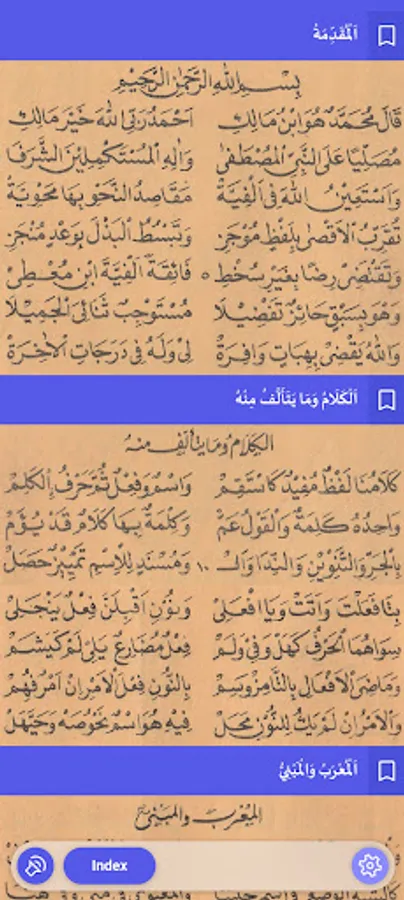 اَلْمُقَدِّمَةُ
بِسْمِ اللهِ الرَّحْمٰنِ الرَّحِيْمِ
قَالَ مُحَمَّدٌ هُوَ ابْنُ مَالِكِ اَحْمَدُ رَبِّى اللهَ خَيْرَ مَالِكِ
مُصَلِّيًا عَلَى النَّبِيِّ الْمُصْطَفٰى وَاٰلِهِ الْمُسْتَكْمِلِيْنَ الشَّرَفَا
وَاَسْتَعِيْنُ اللهَ فِى اَلْفِيَّةْ مَقَاصِدُ النَّحْوِ بِهَا مَحْوِيَّةْ
تُقَرِّبُ الْاَقْصٰى بِلَفْظٍ مُوْجَزِ وَتَبْسُطُ الْبَذْلَ بِوَعْدٍ مُنْجَزِ
وَتَقْتَضِىْ رِضًا بِغَيْرِ سُخْطِ ٥ فَائِقَةً اَلْفِيَّةَ ابْنِ مُعْطِىْ
وَهُوَ بِسَبْقٍ حَائِزٌ تَفْضِيْلَا مُسْتَوْجِبٌ ثَنَائِىَ الْجَمِيْلَا
وَاللهُ يَقْضِىْ بِهِبَاتٍ وَافِرَةْ لِىْ وَلَهُ فِىْ دَرَجَاتِ الْاٰخِرَةْ
اَلْكَلَامُ وَمَا يَتَأَلَّفُ مِنْهُ
الكلام وما يتألف منه
كَلَامُنَا لَفْظٌ مُفِيْدٌ كَاسْتَقِمْ وَاسْمٌ وَفِعْلٌ ثُمَّ حَرْفٌ اَلْكَلِمْ
وَاحِدُهُ كَلِمَةٌ وَالْقَوْلُ عَمّْ وَكِلْمَةٌ بِهَا كَلَامٌ قَدْ يُؤَمّْ
بِالْجَرِّ وَالتَّنْوِيْنِ وَالنِّدَا وَاَلْ ١٠ وَمُسْنَدٍ لِلْاِسْمِ تَمْيِيْزٌ حَصَلْ
بِتَا فَعَلْتَ وَاَتَتْ وَيَا افْعَلِىْ وَنُوْنِ اَقْبِلَنَّ فِعْلٌ يَنْجَلِىْ
سِوَاهُمَا الْحَرْفُ كَهَلْ وَفِىْ وَلَمْ فِعْلٌ مُضَارِعٌ يَلِىْ لَمْ كَيَشَمْ
وَمَاضِىَ الْاَفْعَالِ بِالتَّا مِزْ وَسِمْ بِالنُّوْنِ فِعْلَ الْاَمْرِ اِنْ اَمْرٌ فُهِمْ
وَالْاَمْرُ اِنْ لَمْ يَكُ لِلنُّوْنِ مَحَلْ فِيْهِ هُوَ اسْمٌ نَحْوُ صَهْ وَحَيَّهَلْ
اَلْمُعْرَبُ وَالْمَبْنِيُّ
المعرب والمبنى
Index